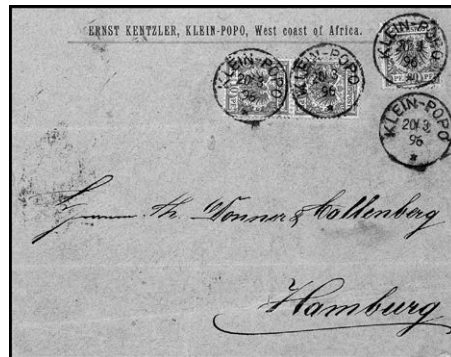 ERNST KENTZLER, KLEIN-POPO, West coast of Africa.
KLEIN-POPO
20/3
96
KLEIN-POPO
20/3
96
KLEIN-POPO
20/3
96
KLEIN-POPO
20/3
96
Th. Donner &
Hamburg